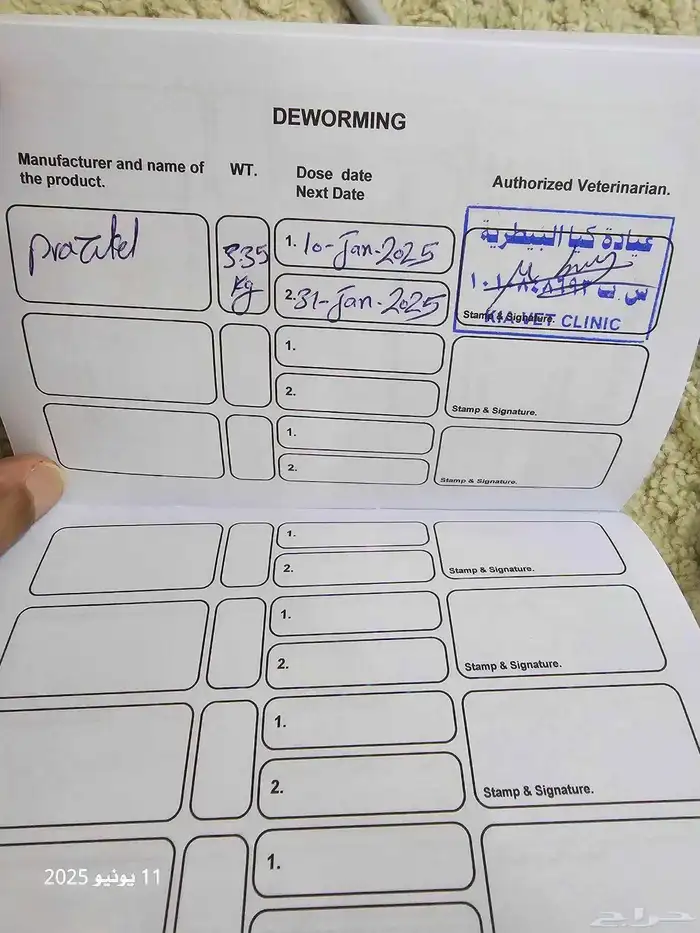 DEWORMING
Manufacturer and name of the product.
WT.
Dose date
Next Date
Authorized Veterinarian.
prazitel
3.35 Kg
1. 10-Jan-2025
2. 31-Jan-2025
عيادة كيا البيطرية
س ت
Stamp & Signature.
KIA VET CLINIC
1.
2.
Stamp & Signature.
1.
2.
Stamp & Signature.
1.
2.
Stamp & Signature.
1.
2.
Stamp & Signature.
1.
2.
Stamp & Signature.
1.
11 يونيو 2025
حراج